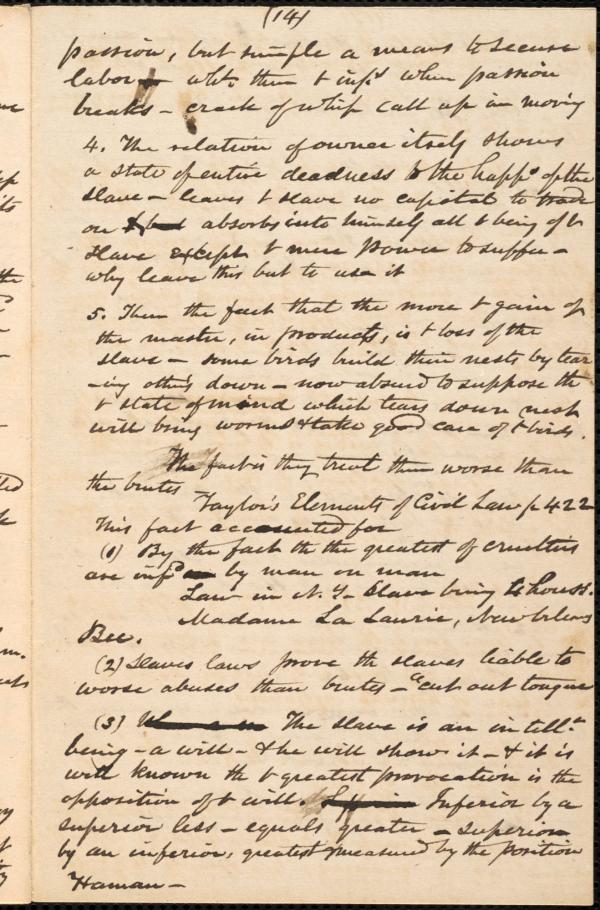 (14)
passion, but simple a means to secure
labor – then & inf^d when passion
breaks – crack of whip call up in moving
4. The relation of owner itself shows
a state of entire deadness to the happ^s of the
slave – leaves & slave no capital to trade
on absorbs into himself all & being of &
slave except & mere power to suffer –
why leave this but to use it
5. Then the fact that the more & gain of
the master, in products, is & loss of the
slave – some birds build their nests by tear
-ing others down – now absurd to suppose th
& state of mind which tears down nest
will bring worms & take good care of & birds.
The fact is they treat them worse than
the brutes
Taylor's Elements of Civil Law p 422
This fact accounted for
(1) By the fact th the greatest of cruelties
are inf^d by man on man
Law in N.Y. Slave being
Madame La Laurie, New Orleans
Bee.
(2) Slaves laws prove th slaves liable to
worse abuses than brutes – cut out tongue
(3) The slave is an intell^t
being – a will – & he will show it – & it is
well known th & greatest provocation is the
opposition of & will. Inferior by a
superior less – equals greater – superior
by an inferior, greatest measured by the position
Haman –